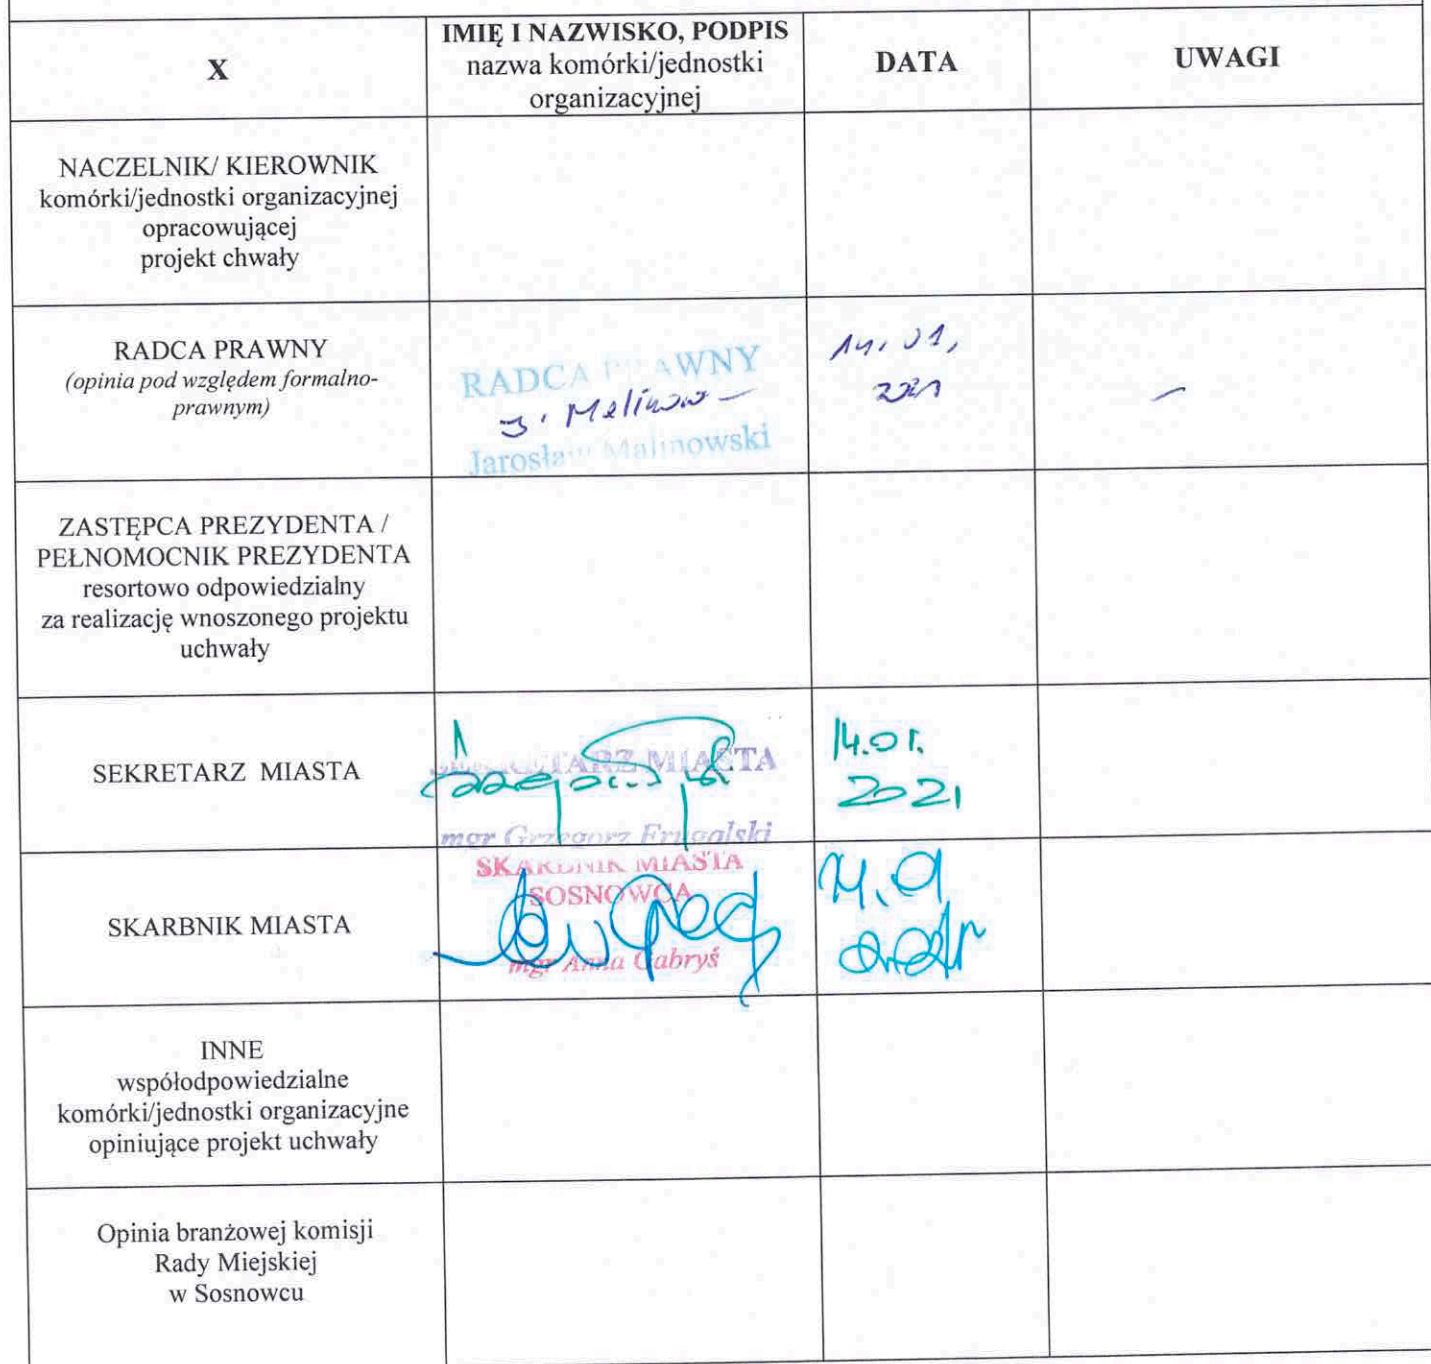 X
IMIĘ I NAZWISKO, PODPIS
nazwa komórki/jednostki
organizacyjnej
DATA
UWAGI
NACZELNIK/ KIEROWNIK
komórki/jednostki organizacyjnej
opracowującej
projekt chwały
RADCA PRAWNY
(opinia pod względem formalno-
prawnym)
RADCA PRAWNY
J. Malinow
Jarosław Malinowski
14.01,
2021
–
ZASTĘPCA PREZYDENTA /
PEŁNOMOCNIK PREZYDENTA
resortowo odpowiedzialny
za realizację wnoszonego projektu
uchwały
SEKRETARZ MIASTA
SEKRETARZ MIASTA
mgr Grzegorz Frugalski
14.01.
2021
SKARBNIK MIASTA
SKARBNIK MIASTA
SOSNOWCA
mgr Anna Gabryś
INNE
współodpowiedzialne
komórki/jednostki organizacyjne
opiniujące projekt uchwały
Opinia branżowej komisji
Rady Miejskiej
w Sosnowcu